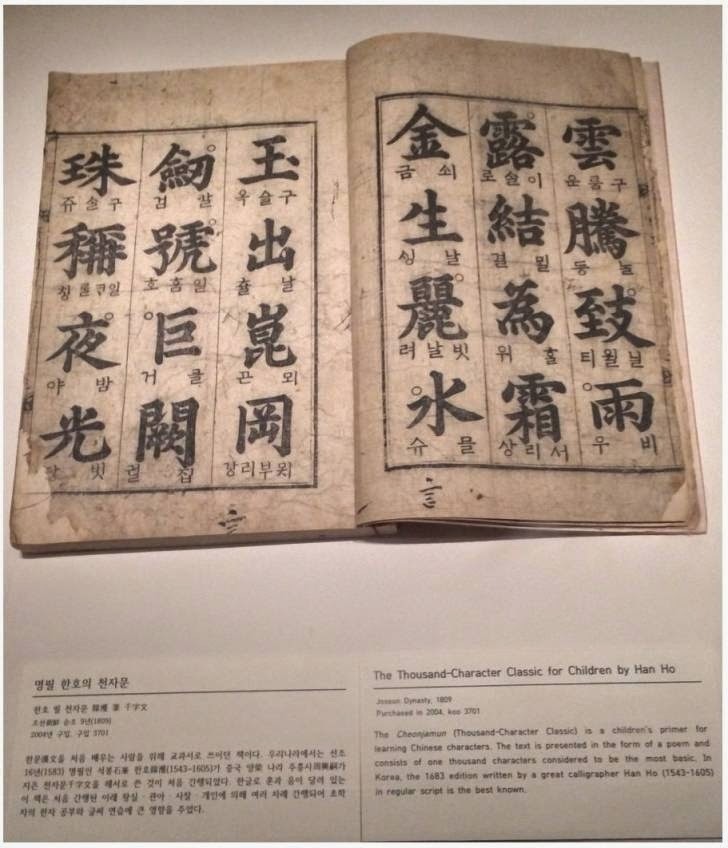 雲 구룸 운 騰 놀 등 致 닐월 티 雨 비 우
露 이슬 로 結 밀 결 為 홀 위 霜 서리 상
金 쇠 금 生 날 싱 麗 빗날 려 水 믈 슈
玉 구슬 옥 出 날 츌 崑 뫼 곤 岡 묏부리 강
劒 칼 검 號 일홈 호 巨 클 거 闕 집 궐
珠 구슬 쥬 稱 칭 夜 밤 야 光 빗
명필 한호의 천자문
한호 필 천자문 韓濩 筆 千字文
조선朝鮮 순조 9년(1809)
2004년 구입, 구입 3701
한문漢文을 처음 배우는 사람을 위해 교과서로 쓰이던 책이다. 우리나라에서는 선조
16년(1583) 명필인 석봉石峯 한호韓濩(1543-1605)가 중국 양梁 나라 주흥사周興嗣가
지은 천자문千字文을 해서로 쓴 것이 처음 간행되었다. 한글로 훈과 음이 달려 있는
이 책은 처음 간행된 이래 왕실·관아·사찰·개인에 의해 여러 차례 간행되어 초학
자의 한자 공부와 글씨 연습에 큰 영향을 주었다.
The Thousand-Character Classic for Children by Han Ho
Joseon Dynasty, 1809
Purchased in 2004, koo 3701
The Cheonjamun (Thousand-Character Classic) is a children's primer for
learning Chinese characters. The text is presented in the form of a poem and
consists of one thousand characters considered to be the most basic. In
Korea, the 1683 edition written by a great calligrapher Han Ho (1543-1605)
in regular script is the best known.